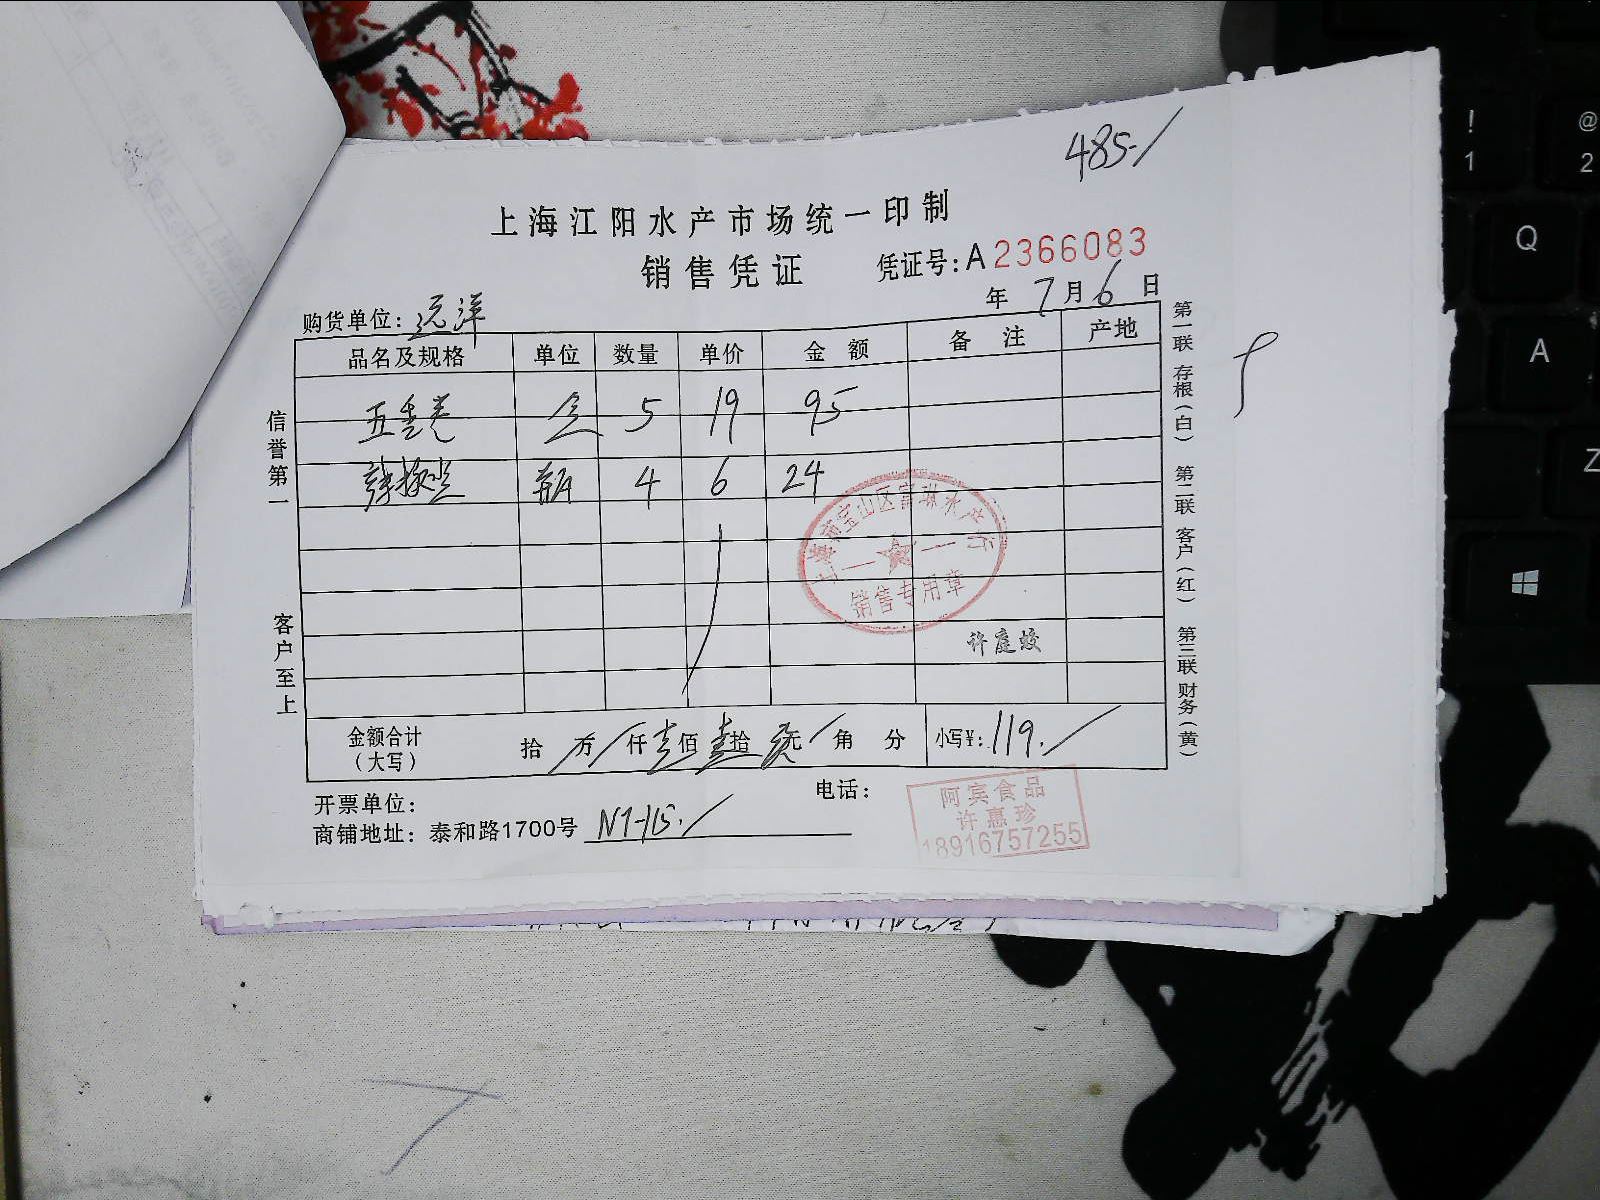 485-/
上海江阳水产市场统一印制
销售凭证 凭证号:A2366083
年 7月6日
购货单位: 远洋
品名及规格 单位 数量 单价 金额 备注 产地
5 19 95
瓶 4 6 24
上海市宝山区富琳水产行
销售专用章
许庭蛟
金额合计
(大写)
拾 万 仟 壹佰 壹拾 玖元 角 分 小写¥: 119./
开票单位: 电话:
商铺地址: 泰和路1700号 N7-115./
阿宾食品
许惠珍
18916757255
信誉第一
客户至上
第一联 存根(白) 第二联 客户(红) 第三联 财务(黄)
!
1
@
2
Q
A
Z